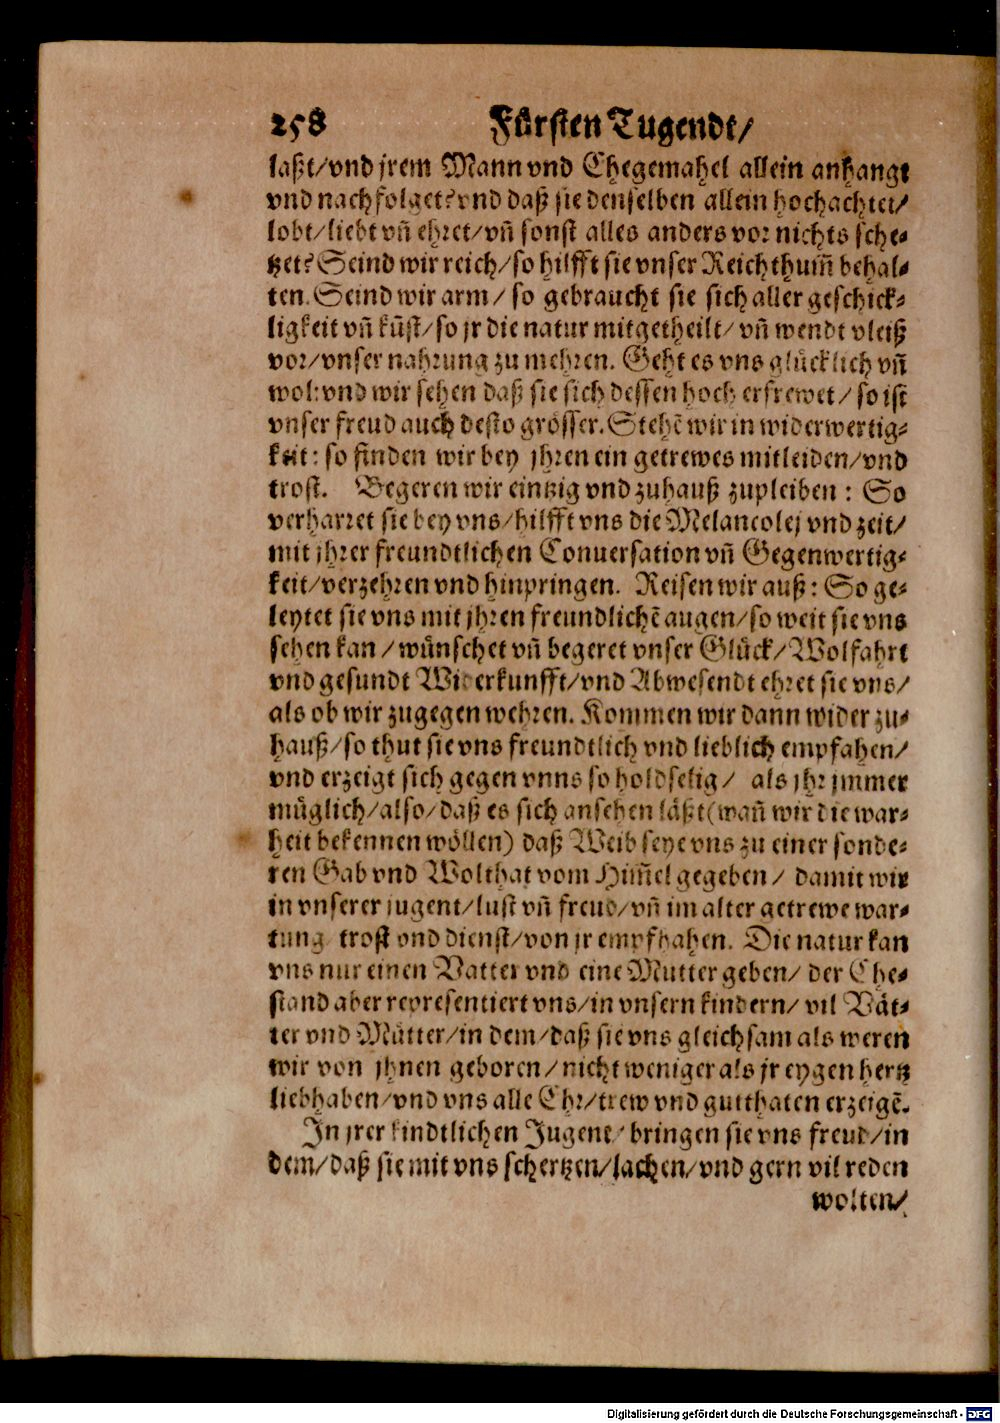 258 Fürsten Tugendt/
laßt/vnd jrem Mann vnd Ehegemahel allein anhangt
vnd nachfolget? vnd daß sie denselben allein hochachtet/
lobt/liebt vñ ehret/vñ sonst alles anders vor nichts sche-
tzet? Seind wir reich/so hilfft sie vnser Reichthum̃ behal-
ten. Seind wir arm/ so gebraucht sie sich aller geschick-
ligkeit vñ kũst/so jr die natur mitgetheilt/ vñ wendt vleiß
vor/vnser nahrung zu mehren. Geht es vns glücklich vñ
wol: vnd wir sehen daß sie sich dessen hoch erfrewet/ so ist
vnser freud auch desto grösser. Stehẽ wir in widerwertig-
keit: so finden wir bey jhren ein getrewes mitleiden/vnd
trost. Begeren wir eintzig vnd zuhauß zupleiben: So
verharret sie bey vns/hilfft vns die Melancolej vnd zeit/
mit jhrer freundtlichen Conuersation vñ Gegenwertig-
keit/verzehren vnd hinpringen. Reisen wir auß: So ge-
leytet sie vns mit jhren freundlichẽ augen/so weit sie vns
sehen kan/wünschet vñ begeret vnser Glück/Wolfahrt
vnd gesundt Widerkunfft/vnd Abwesendt ehret sie vns/
als ob wir zugegen wehren. Kommen wir dann wider zu-
hauß/so thut sie vns freundtlich vnd lieblich empfahen/
vnd erzeigt sich gegen vnns so holdselig/ als jhr jmmer
müglich/also/daß es sich ansehen läßt (wañ wir die war-
heit bekennen wöllen) daß Weib seye vns zu einer sonde-
ren Gab vnd Wolthat vom Him̃el gegeben/ damit wir
in vnserer jugent/lust vñ freud/vñ im alter getrewe war-
tung trost vnd dienst/von jr empfhahen. Die natur kan
vns nur einen Vatter vnd eine Mutter geben/ der Ehe-
stand aber representiert vns/in vnsern kindern/ vil Vät-
ter vnd Mütter/in dem/daß sie vns gleichsam als weren
wir von jhnen geboren/nicht weniger als jr eygen hertz
liebhaben/vnd vns alle Ehr/trew vnd gutthaten erzeigẽ.
In jrer kindtlichen Jugent/bringen sie vns freud/in
dem/daß sie mit vns schertzen/lachen/vnd gern vil reden
wolten/
Digitalisierung gefördert durch die Deutsche Forschungsgemeinschaft - DFG